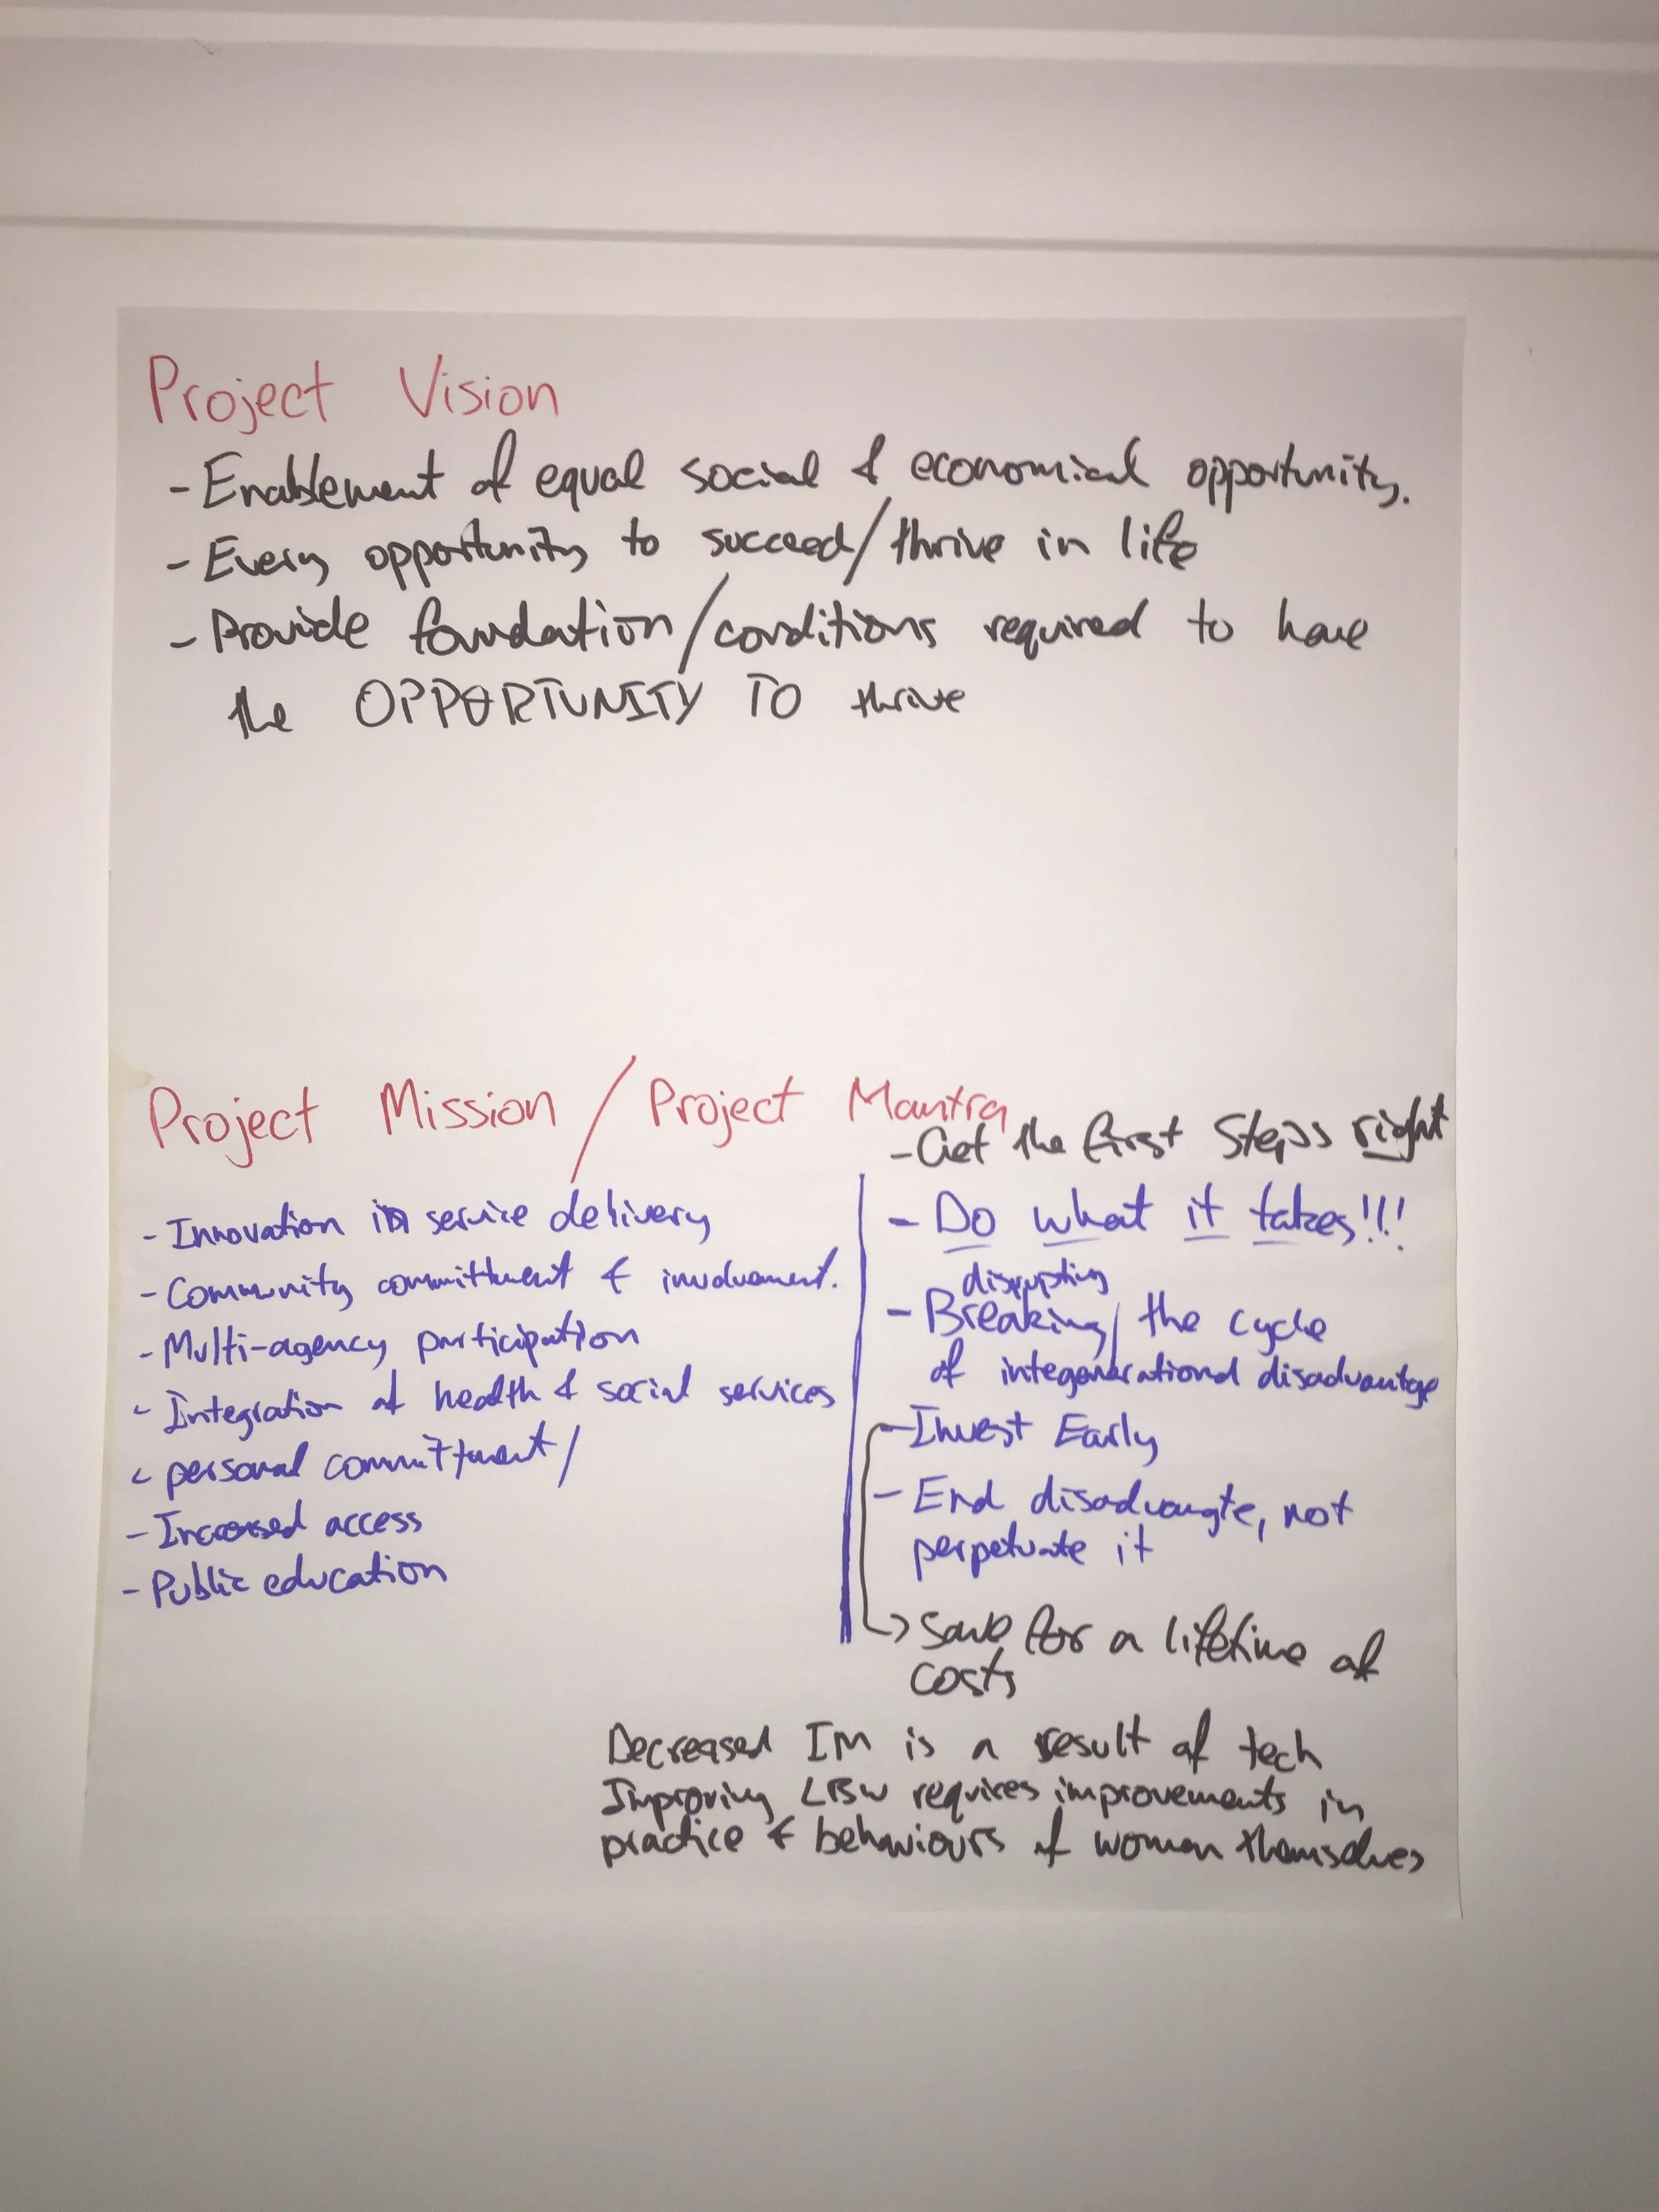 Project Vision
- Enablement of equal social & economical opportunity.
- Every opportunity to succeed/thrive in life
- Provide foundation/conditions required to have
the OPPORTUNITY TO thrive
Project Mission / Project Mantra
- Innovation in service delivery
- Community committment & involvement.
- Multi-agency participation
- Integration of health & social services
- personal committment/
- Increased access
- Public education
- Get the first Steps right
- Do what it takes!!!
disrupting
- Breaking/ the cycle
of integenerational disadvantge
- Invest Early
- End disadvangte, not
perpetuate it
→ Save for a lifetime of
costs
Decreased IM is a result of tech
Improving LBW requires improvements in
practice & behaviours of women themselves